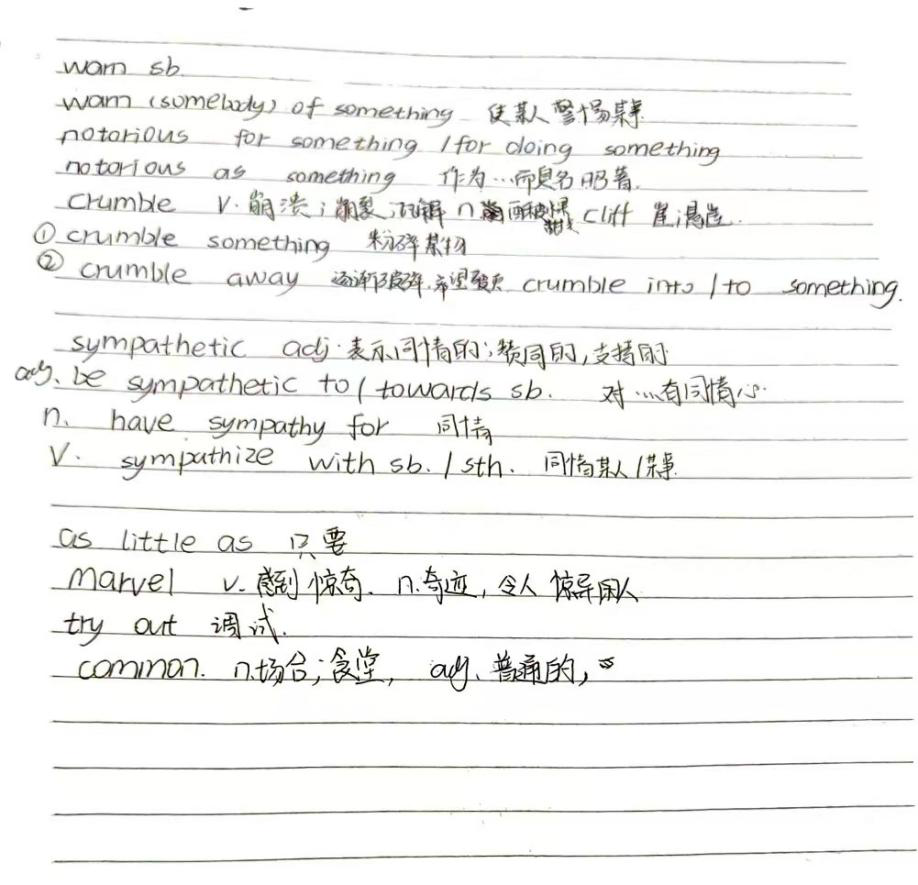 warn sb.
warn (somebody) of something 使某人警惕某事
notorious for something / for doing something
notorious as something 作为…而臭名昭著.
crumble v. 崩溃; 崩裂, 瓦解 n. cliff 崖,悬崖.
① crumble something 粉碎某物
② crumble away 逐渐破碎. 希望破灭 crumble into / to something.
sympathetic adj. 表示同情的; 赞同的, 支持的
adj. be sympathetic to / towards sb. 对…有同情心.
n. have sympathy for 同情
v. sympathize with sb. / sth. 同情某人/某事.
as little as 只要
marvel v. 感到惊奇. n. 奇迹, 令人惊异的人
try out 调试.
common. n. 场合; 食堂, adj. 普通的,